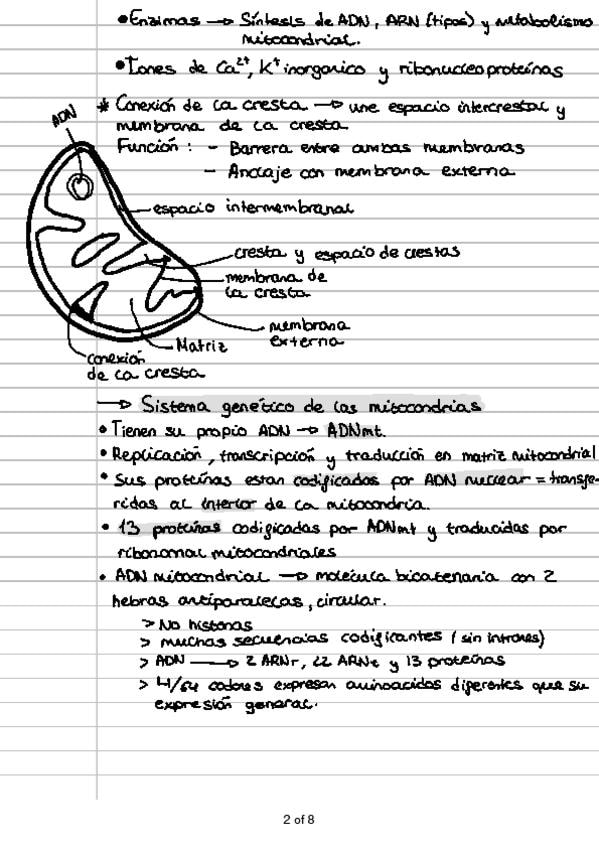 • Enzimas → Síntesis de ADN, ARN (tipos) y metabolismo
mitocondrial.
• Iones de Ca²⁺, K⁺ inorganico y ribonucleoproteínas
* Conexión de la cresta → une espacio intercrestal y
membrana de la cresta
Función: - Barrera entre ambas membranas
- Anclaje con membrana externa
ADN
espacio intermembranal
cresta y espacio de crestas
membrana de
la cresta
membrana
externa
Matriz
conexión
de la cresta
→ Sistema genético de las mitocondrias
• Tienen su propio ADN → ADNmt.
• Replicación, transcripción y traducción en matriz mitocondrial
• Sus proteínas estan codificadas por ADN nuclear = transfe-
ridas al interior de la mitocondria.
• 13 proteínas codificadas por ADNmt y traducidas por
ribosomal mitocondriales
• ADN mitocondrial → molécula bicatenaria con 2
hebras antiparalelas, circular.
> No histonas
> muchas secuencias codificantes (sin intrones)
> ADN → 2 ARNr, 22 ARNt y 13 proteínas
> 4/64 codones expresan aminoacidos diferentes que su
expresión general.
2 of 8